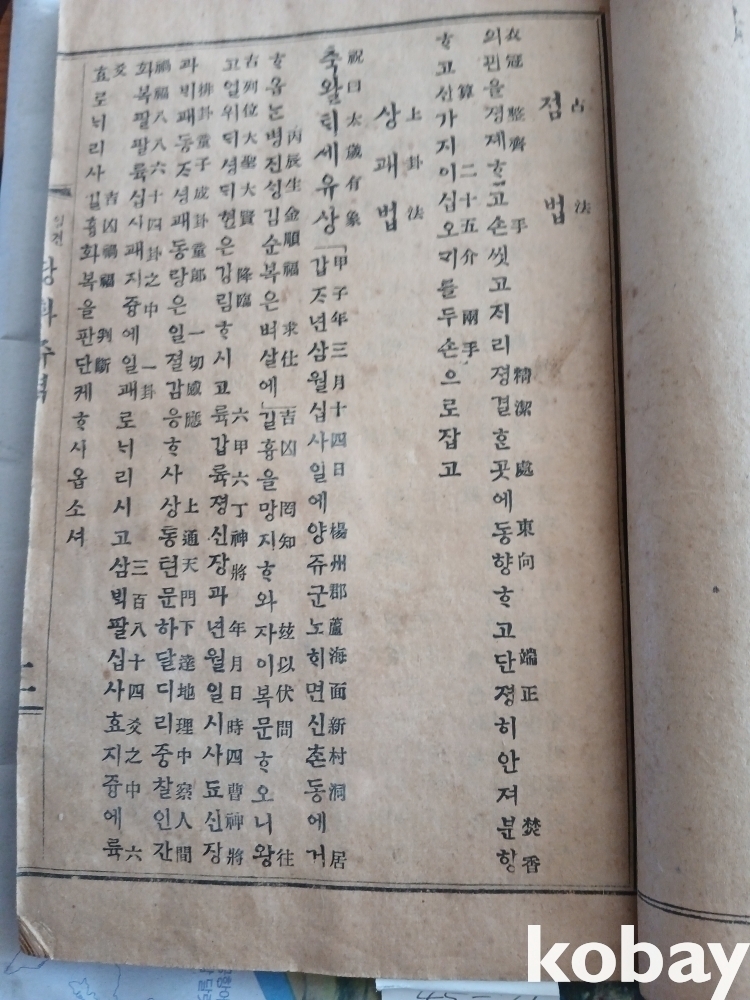 占法
점법
衣冠 整齊 手 精潔 處 東向 端正 焚香
의관을졍제ᄒᆞ고손씻고저리졍결ᄒᆞᆫ곳에동향ᄒᆞ고단졍히안져분향
算 二十五介 兩手
ᄒᆞ고산가지이십오ᄀᆡ를두손으로잡고
上卦法
상괘법
祝曰太歲有象 甲子年三月十四日 楊州郡蘆海面新村洞 居
축왈ᄐᆡ세유상「갑ᄌᆞ년삼월십사일에양쥬군노ᄒᆡ면신촌동에거
丙辰生金順福 求仕 吉凶 罔知 玆以伏問 往
ᄒᆞ옵ᄂᆞᆫ병진ᄉᆡᆼ김순복은벼살에」길흉을망지ᄒᆞ와자이복문ᄒᆞ오니왕
古列位大聖大賢 降臨 六甲六丁神將 年月日時四曹神將
고열위ᄃᆡ셩ᄃᆡ현은강림ᄒᆞ시고륙갑륙졍신장과년월일시사됴신장
排卦童子成卦童郎 一切感應 上通天門下達地理中察人間
과ᄇᆡ괘동ᄌᆞ셩괘동랑은일졀감응ᄒᆞ사상통텬문하달디리중찰인간
禍福八八六十四卦之中 一卦 三百八十四爻之中 六
화복팔팔륙십사괘지즁에일괘로ᄂᆡ리시고삼ᄇᆡᆨ팔십사효지즁에륙
爻 吉凶禍福 判斷
효로ᄂᆡ리사길흉화복을판단케ᄒᆞ시옵소셔
二
kobay